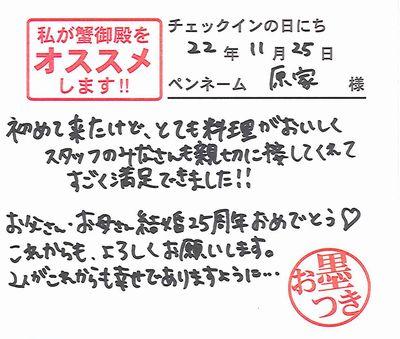 私が蟹御殿を
オススメ
します!!
チェックインの日にち
22年11月25日
ペンネーム 原家 様
初めて来たけど、とても料理がおいしく
スタッフのみなさんも親切に接してくれて
すごく満足できました!!
お父さん・お母さん結婚25周年おめでとう♡
これからも、よろしくお願いします。
2人がこれからも幸せでありますように…
お墨
つき